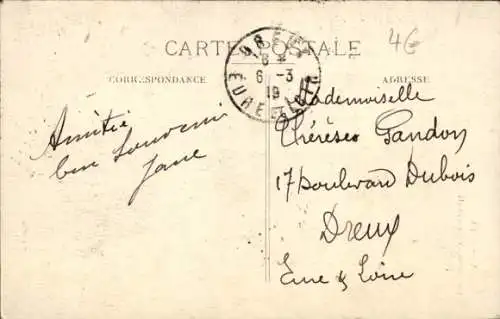 CARTE POSTALE
4€
CORRESPONDANCE
ADRESSE
DREUX
6 -3
19
EURE
Amitié
bon souvenir
Jane
Mademoiselle
Thérèse Gandon
17 boulevard Dubois
Dreux
Eure & Loire